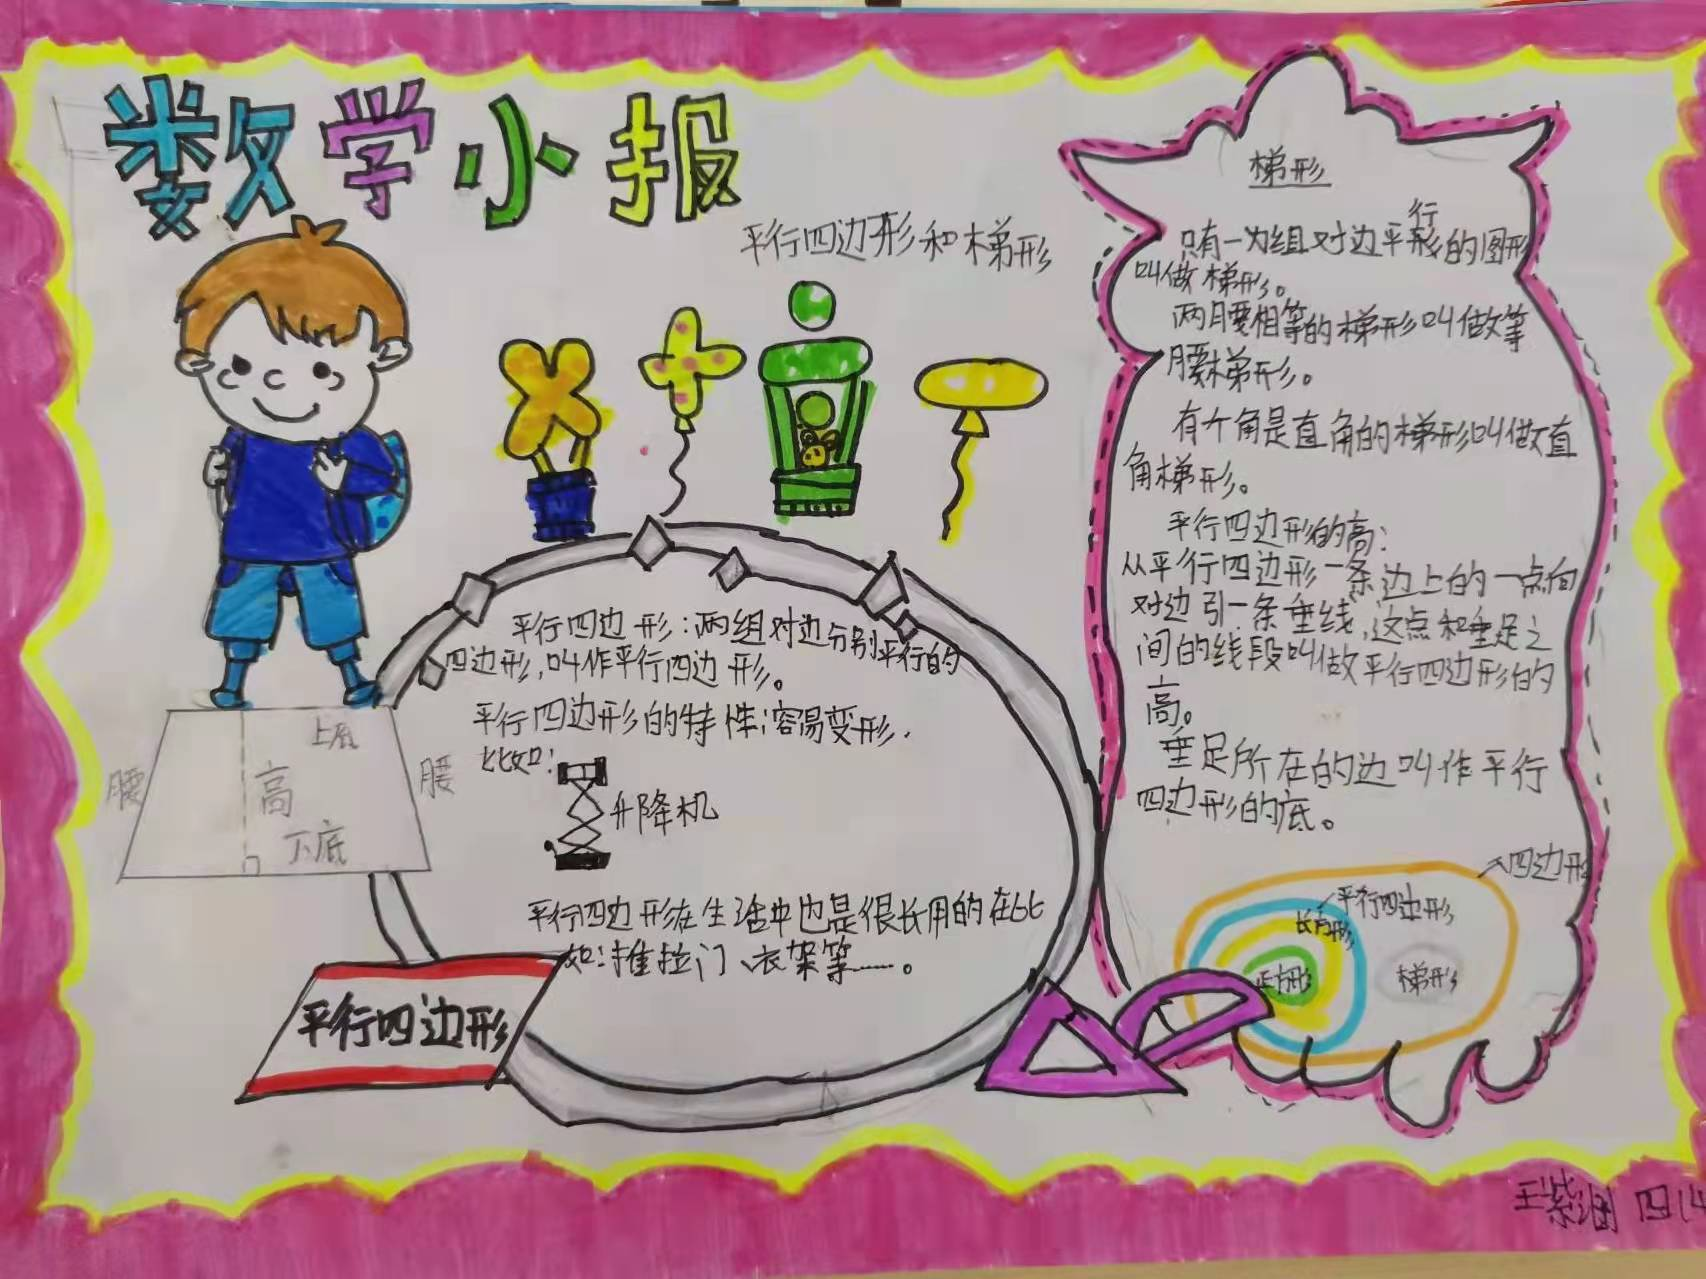 数学小报
平行四边形和梯形
上底
腰
高
腰
下底
平行四边形:两组对边分别平行的
四边形,叫作平行四边形。
平行四边形的特性:容易变形.
比如:
升降机
平行四边形在生活中也是很长用的在比
如:推拉门、衣架等……。
平行四边形
梯形
行
只有一为组对边平形的图形
叫做梯形。
两腰相等的梯形叫做等
腰梯形。
有个角是直角的梯形叫做直
角梯形。
平行四边形的高:
从平行四边形一条边上的一点向
对边引一条垂线,这点和垂足之
间的线段叫做平行四边形的
高。
垂足所在的边叫作平行
四边形的底。
四边形
平行四边形
长方形
正方形
梯形
王紫 四